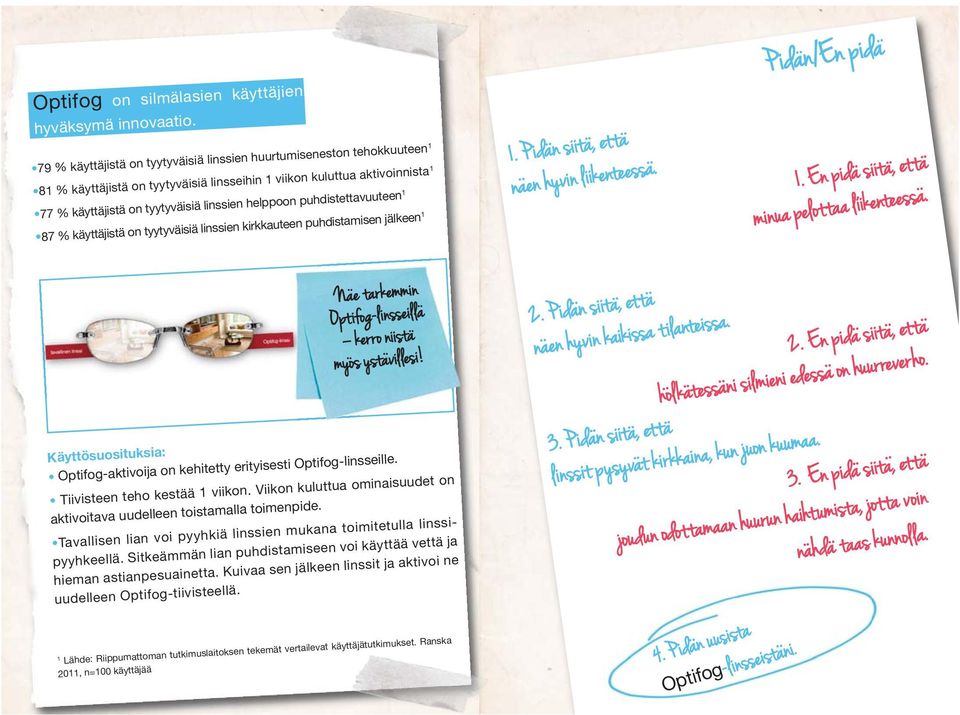 Optifog on silmälasien käyttäjien
hyväksymä innovaatio.
•79 % käyttäjistä on tyytyväisiä linssien huurtumiseneston tehokkuuteen¹
•81 % käyttäjistä on tyytyväisiä linsseihin 1 viikon kuluttua aktivoinnista¹
•77 % käyttäjistä on tyytyväisiä linssien helppoon puhdistettavuuteen¹
•87 % käyttäjistä on tyytyväisiä linssien kirkkauteen puhdistamisen jälkeen¹
Näe tarkemmin
Optifog-linsseillä
– kerro niistä
myös ystävillesi!
tavallinen linssi
Optifog-linssi
Käyttösuosituksia:
• Optifog-aktivoija on kehitetty erityisesti Optifog-linsseille.
• Tiivisteen teho kestää 1 viikon. Viikon kuluttua ominaisuudet on
aktivoitava uudelleen toistamalla toimenpide.
•Tavallisen lian voi pyyhkiä linssien mukana toimitetulla linssi-
pyyhkeellä. Sitkeämmän lian puhdistamiseen voi käyttää vettä ja
hieman astianpesuainetta. Kuivaa sen jälkeen linssit ja aktivoi ne
uudelleen Optifog-tiivisteellä.
¹ Lähde: Riippumattoman tutkimuslaitoksen tekemät vertailevat käyttäjätutkimukset. Ranska
2011, n=100 käyttäjää
Pidän/En pidä
1. Pidän siitä, että
näen hyvin liikenteessä.
1. En pidä siitä, että
minua pelottaa liikenteessä.
2. Pidän siitä, että
näen hyvin kaikissa tilanteissa.
2. En pidä siitä, että
hölkätessäni silmieni edessä on huurreverho.
3. Pidän siitä, että
linssit pysyvät kirkkaina, kun juon kuumaa.
3. En pidä siitä, että
joudun odottamaan huurun haihtumista, jotta voin
nähdä taas kunnolla.
4. Pidän uusista
Optifog-linsseistäni.